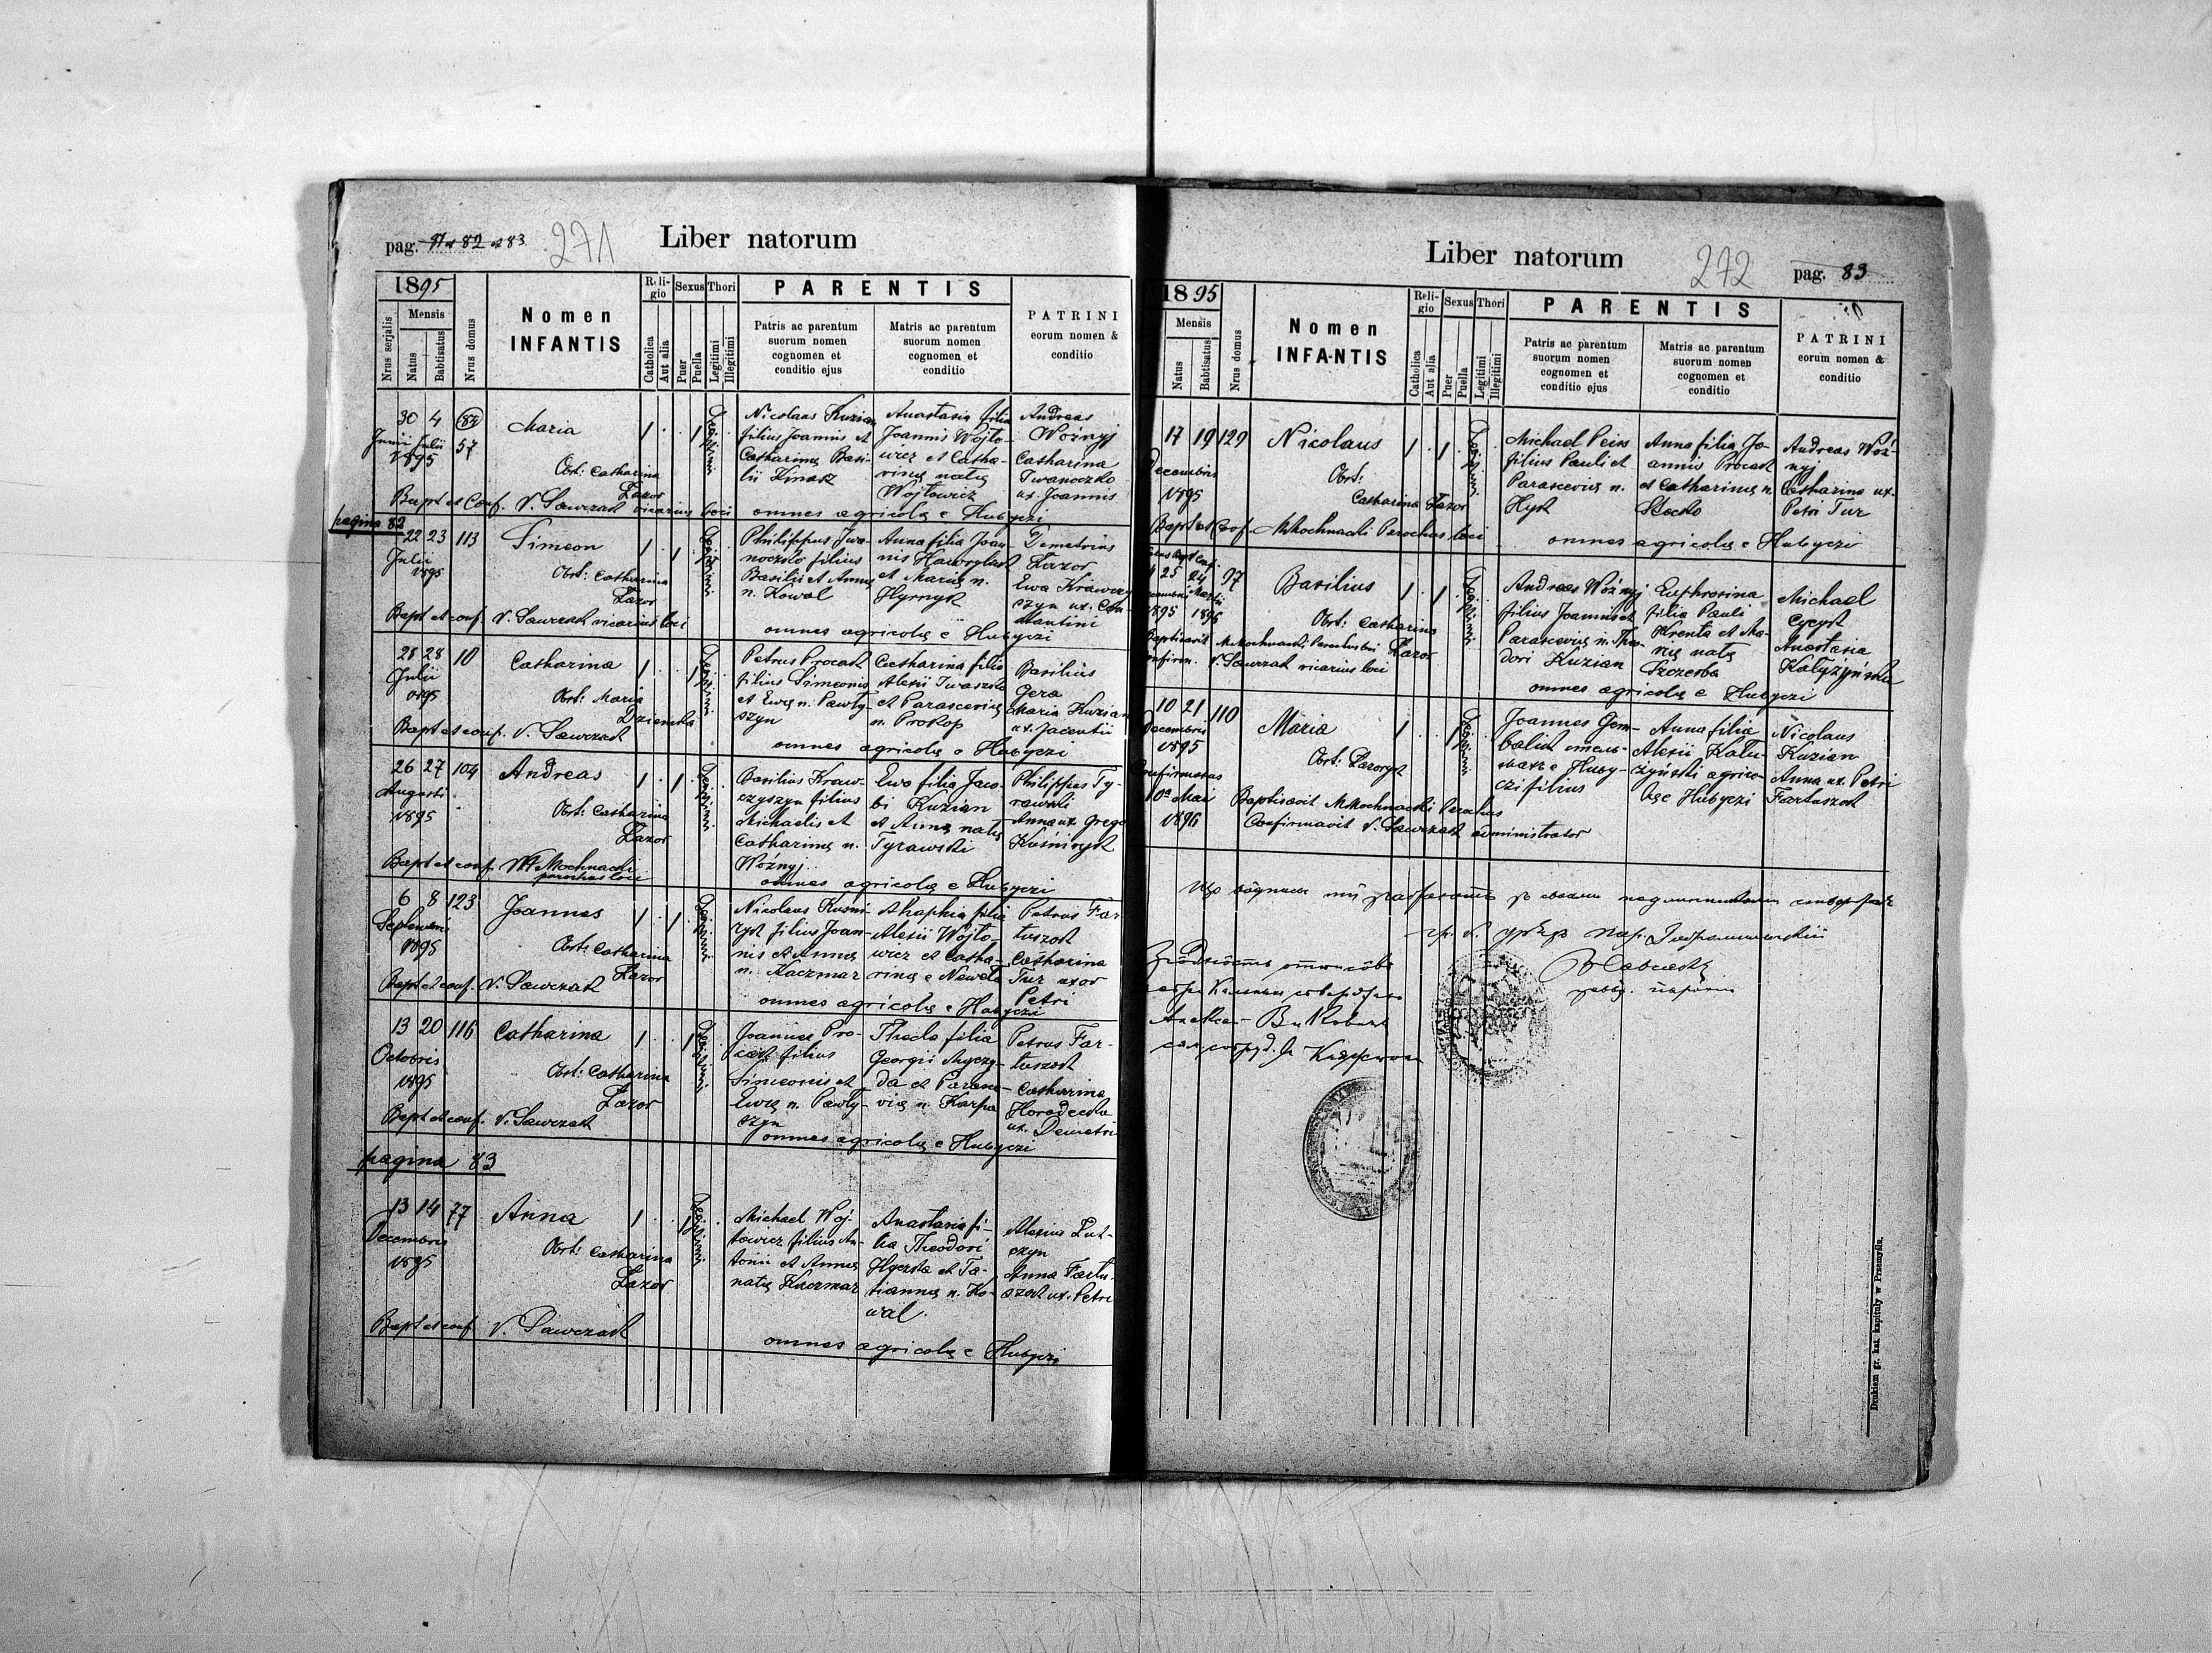 pag. 81 et 82 et 83
271
Liber natorum
1895
Mensis
Nrus serjalis
Natus
Babtisatus
Nrus domus
Nomen
INFANTIS
Religio
Catholica
Aut alia
Sexus
Puer
Puella
Thori
Legitimi
Illegitimi
PARENTIS
Patris ac parentum
suorum nomen
cognomen et
conditio ejus
Matris ac parentum
suorum nomen
cognomen et
conditio
PATRINI
eorum nomen &
conditio
30 4 84
Junii Julii 57
1895
Maria
Obst: Catharina
Łazor
1 . . 1 Legitimi
Nicolaus Kuzian
filius Joannis et
Catharinę Basi-
lii Kinasz
Anastasia filia
Joannis Wojto-
wicz et Catha-
rinę natę
Wojtowicz
Andreas
Woźnyj
Catharina
Iwanoczko
ux. Joannis
Bapt et Conf. V. Sawczak vicarius loci omnes agricolę e Hubyczi
pagina 82
22 23 113
Julii
1895
Simeon
Obst: Catharina
Łazor
1 . 1 . Legitimi
Philippus Iwa-
noczko filius
Basilii et Annę
n. Kowal
Anna filia Joan-
nis Hawrylak
et Marię n.
Hyrnyk
Demetrius
Łazor
Ewa Krawczy-
szyn ux. Con
stantini
Bapt et conf. V. Sawczak vicarius loci omnes agricolę e Hubyczi
28 28 10
Julii
1895
Catharina
Obst: Maria
Dziemba
1 . . 1 Legitimi
Petrus Procak
filius Simeonis
et Ewę n. Pawły-
szyn
Catharina filia
Alexii Iwaszko
et Parascevię
n. Prokop
Basilius
Gera
Maria Kuzian
ux. Jacentii
Bapt et conf. V. Sawczak
omnes agricolę e Hubyczi
26 27 104
Augusti
1895
Andreas
Obst: Catharina
Łazor
1 . 1 . Legitimi
Basilius Kraw-
czyszyn filius
Michaelis et
Catharinę n.
Woźnyj
Ewa filia Jaco-
bi Kuzian
et Annę natę
Tyrawski
Philippus Ty-
rawski
Anna ux. Grego
Kuśniryk
Bapt et conf. Mochnacki
parochus loci
omnes agricolę e Hubyczi
6 8 123
Septembris
1895
Joannes
Obst: Catharina
Łazor
1 . 1 . Legitimi
Nicolaus Kuśni-
ryk filius Joan-
nis et Annę
n. Kaczmar
Ahaphia filia
Alexii Wojto-
wicz et Catha-
rinę e
Petrus Far
tuszok
Catharina
Tur uxor
Petri
Bapt et conf. V. Sawczak
omnes agricolę e Hubyczi
13 20 116
Octobris
1895
Catharina
Obst: Catharina
Łazor
1 . . 1 Legitimi
Joannes Pro-
cak filius
Simeonis et
Ewę n. Pawły-
szyn
Thecla filia
Georgii Myczy-
da et Parasce-
vię n. Karpa
Petrus Far-
tuszok
Catharina
Horodecka
ux. Demetri
Bapt et conf. V. Sawczak
omnes agricolę e Hubyczi
pagina 83
13 14 77
Decembris
1895
Anna
Obst: Catharina
Łazor
1 . . 1 Legitimi
Michael Woj-
towicz filius An-
tonii et Annę
natę Kaczmar
Anastasia fi-
lia Theodori
et Ta-
tiannę n. Ko-
wal
Alexius Łut-
czyn
Anna Fartu-
szok ux. Petri
Bapt et conf V. Sawczak
omnes agricolę e Hubyczi
Liber natorum
272
pag. 83
1895
Mensis
Natus
Babtisatus
Nrus domus
Nomen
INFANTIS
Religio
Catholica
Aut alia
Sexus
Puer
Puella
Thori
Legitimi
Illegitimi
PARENTIS
Patris ac parentum
suorum nomen
cognomen et
conditio ejus
Matris ac parentum
suorum nomen
cognomen et
conditio
PATRINI
eorum nomen &
conditio
17 19 129
Decembris
1895
Nicolaus
Obst:
Catharina Łazor
1 . 1 . Legitimi
Michael Peiss
filius Pauli et
Parascevię n.
Hyk
Anna filia Jo-
annis Procak
et Catharinę n.
Stecko
Andreas Woź-
nyj
Catharina ux.
Petri Tur
Bapt et Conf Mochnacki Parochus loci
omnes agricolę e Hubyczi
25 24 97
Martii
1895 1896
Basilius
Obst: Catharina
Łazor
1 . 1 . Legitimi
Andreas Woźnyj
filius Joannis et
Parascevię n. Theo-
dori Kuzian
Euphrosina
filia Pauli
Krenta et Ma-
rię natę
Szczerba
Michael
Cycyk
Anastasia
Kałyżyńska
Baptisavit Mochnacki Parochus loci
Confirm. V. Sawczak vicarius loci
omnes agricolę e Hubyczi
10 21 110
Decembris
1895
Maria
Obst: Łazoryk
1 . . 1 Legitimi
Joannes Gem-
balik
e Huby-
czi filius
Anna filia
Alexii Kału-
żyński agrico-
lae Hubyczi
Nicolaus
Kuzian
Anna ux. Petri
Fartuszok
Confirmatus
10ª Mai
1896
Baptisavit Mochnacki Parochus
Confirmavit V. Sawczak administrator
Drukiem gr. kat. kapituły w Przemyślu.